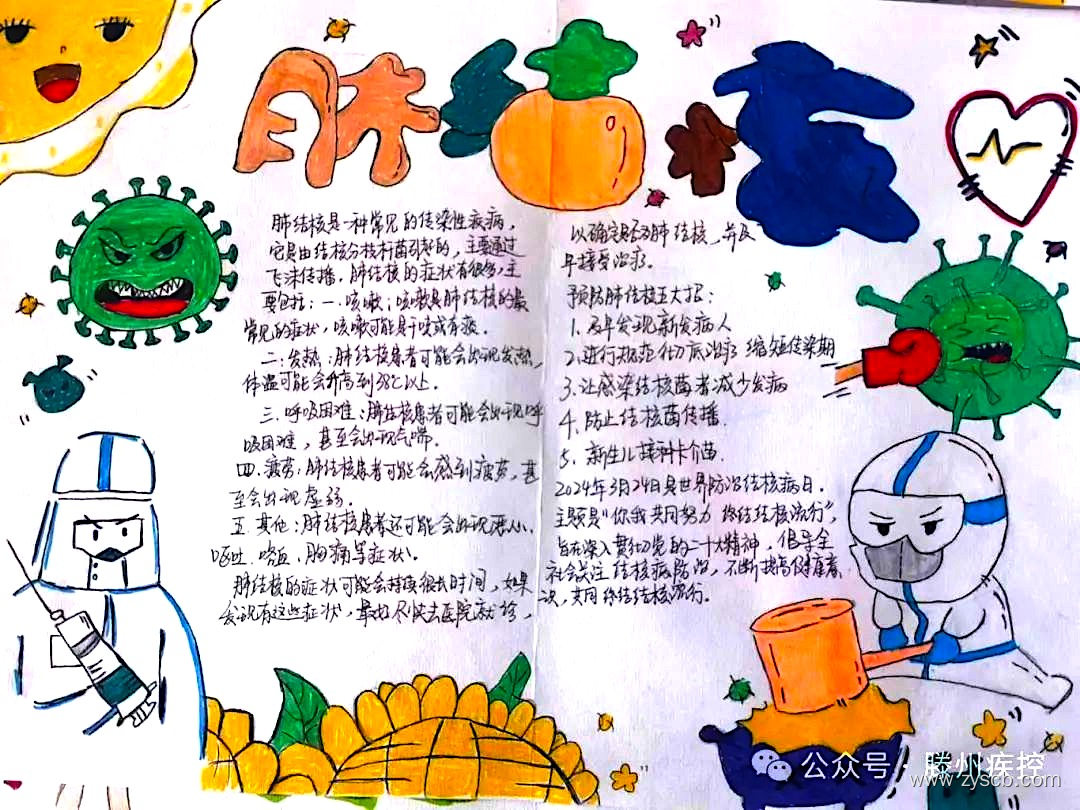 肺结核
肺结核是一种常见的传染性疾病,
它是由结核分枝杆菌引起的,主要通过
飞沫传播,肺结核的症状有很多,主
要包括:一.咳嗽;咳嗽是肺结核的最
常见的症状,咳嗽可能是干咳或有痰.
二.发热:肺结核患者可能会出现发热,
体温可能会升高到38℃以上.
三.呼吸困难:肺结核患者可能会出现呼
吸困难,甚至会出现气喘.
四.疲劳:肺结核患者可能会感到疲劳,甚
至会出现虚弱.
五.其他:肺结核患者还可能会出现恶心、
呕吐.咯血.胸痛等症状.
肺结核的症状可能会持续很长时间,如果
发现有这些症状,最好尽快去医院就诊,
以确定是否为肺结核,并及
早接受治疗.
预防肺结核五大招:
1.及早发现新发病人
2.进行规范彻底治疗 缩短传染期
3.让感染结核菌者减少发病
4.防止结核菌传播.
5.新生儿接种卡介苗.
2024年3月24日是世界防治结核病日.
主题是"你我共同努力 终结结核流行",
旨在深入贯彻党的二十大精神,倡导全
社会关注结核病防治,不断提高健康意
识,共同终结结核流行.
公众号·滕州疾控
www.zyscb.com